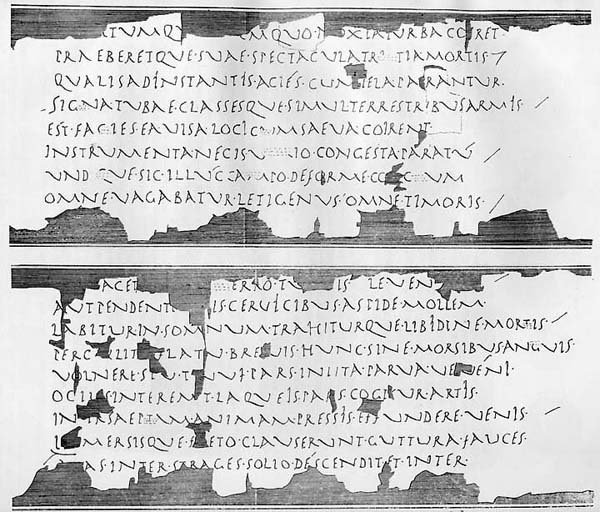 TUMQU UMQUO·NOXIATURBACOIRET·
PRAEBERETQUE·SUAE·SPECTACULATR TIAMORTIS /
QUALISADINSTANTIS·ACIES·CUM TELAPARANTUR·
SIGNATUBAE·CLASSESQUE·SIMULTERRESTRIBUSARMIS· /
EST·FACIES·EAVISA·LOCI·CUMSAEVA·COIRENT·
INSTRUMENTANECISU IO·CONGESTA·PARATU /
UND QUE·SIC·ILLUC AMPO·DEFORME·CO C UM
OMNE·VAGABATUR·LETIGENUS·OMNE·TIMORIS· /
ACET ERRO·TU IS LE·VEN
AUTPENDENT IS·CERVICIBUS·ASPIDE·MOLLEM·
LABITURIN·SOMNUM·TRAHITURQUE·LIBIDINE·MORTIS· /
PERC LATU·BREUIS·HUNC·SINE·MORSIBUSANGUIS·
VOLNERE·S U·T NUI·PARS·INLITA·PARVA·VENENI
OCIUSINTEREMIT·LAQUEISPARS·COGITUR·ARTIS·
IN RSAEPTAM·ANIMAM·PRESSIS·EFFUNDERE·VENIS· /
I MERSISQUE·F ETO·CLAUSERUNT·GUTTURA·FAUCES·
AS·INTER·STRAGES·SOLIO·DESCENDIT·ET·INTER·